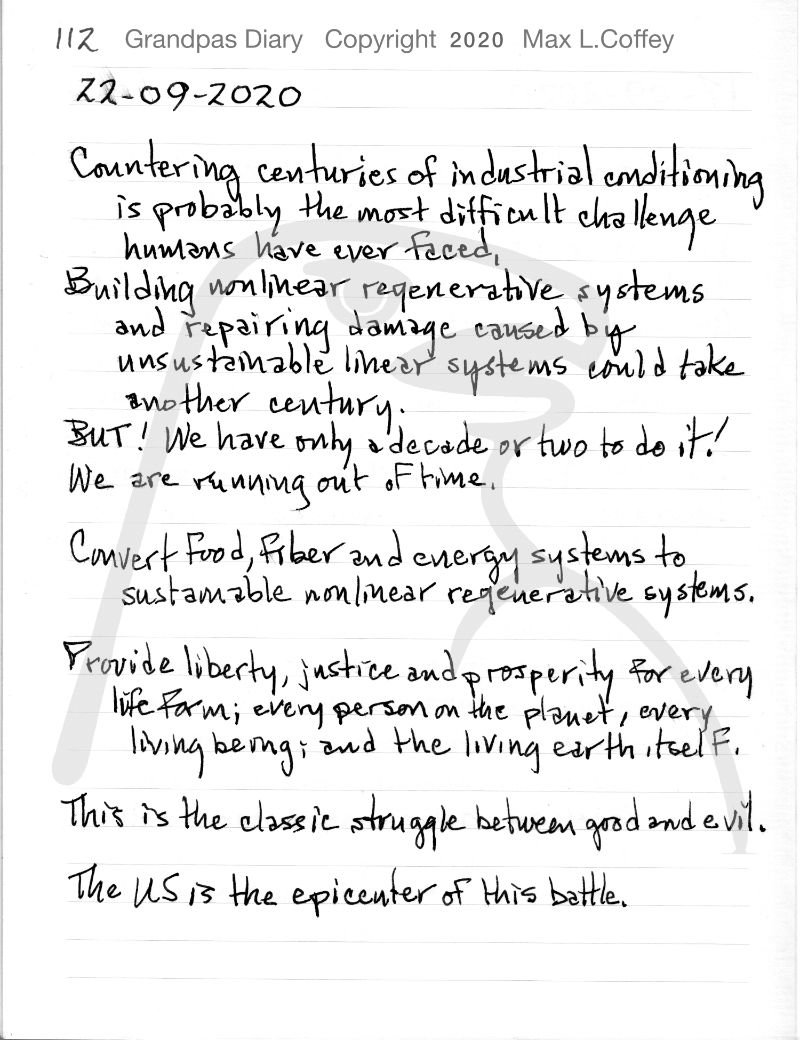 112 Grandpas Diary Copyright 2020 Max L.Coffey
22-09-2020
Countering centuries of industrial conditioning
is probably the most difficult challenge
humans have ever faced.
Building nonlinear regenerative systems
and repairing damage caused by
unsustainable linear systems could take
another century.
BUT! We have only a decade or two to do it!
We are running out of time.
Convert food, fiber and energy systems to
sustainable nonlinear regenerative systems.
Provide liberty, justice and prosperity for every
life form; every person on the planet, every
living being; and the living earth itself.
This is the classic struggle between good and evil.
The US is the epicenter of this battle.